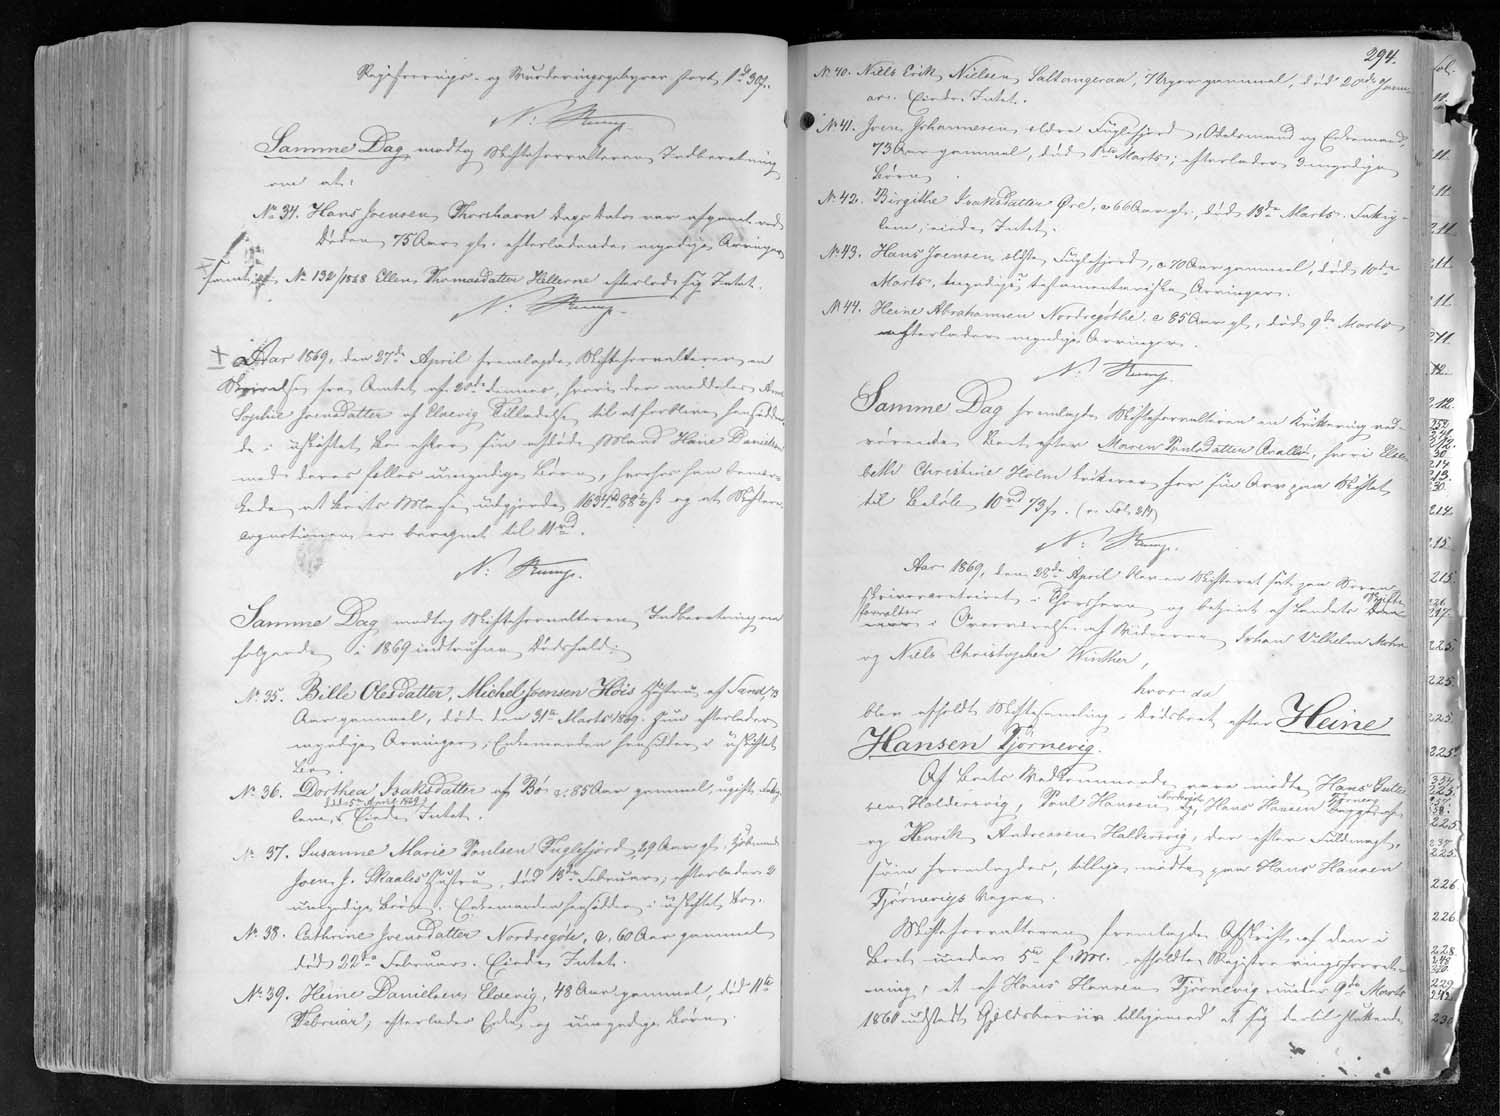 Registrerings- og Vurderingsgebyrer stort 1 rd 30 ß.
N: Rump.
Samme Dag modtog Skifteforvalteren Indberetning
om at:
No 34. Hans Joensen Thorshavn Dags Dato var afgaaet ved
Døden, 75 Aar gl. efterladende myndige Arvinger
No 132/1868 Ellen Thomasdatter Hellerne efterlod sig Intet.
N: Rump.
Aar 1869, den 27de April fremlagde Skifteforvalteren en
Skrivelse fra Amtet af 20de dennes, hvori der meddeles Anna
Sophie Joensdatter af Eldevig Tilladelse til at forblive hensidden-
de i uskiftet Bo efter sin afdøde Mand Heine Danielsen
med deres fælles umyndige Børn, hvorhos han bemær-
kede at Boets Masse udgjorde 1634 rd 88½ ß og at Skiftere-
cognitionen er beregnet til 11 rd.
N: Rump.
Samme Dag modtog Skifteforvalteren Indberetning om
følgende i 1869 indtrufne Dødsfald:
No 35. Bille Olesdatter, Michel Joensen Høis Hustru af Sand, 73
Aar gammel, død den 31te Marts 1869. Hun efterlader
myndige Arvinger, Enkemanden hensidder i uskiftet
Bo.
No 36. Dorthea Isaksdatter af Bø, c. 85 Aar gammel, ugift Fattig-
død 5te April 1869
lem, Eiede Intet.
No 37. Susanne Marie Poulsen Fuglefjord, 29 Aar gl. Kjøbmand
Joen J. Skaales Hustru, død 13de Februar, efterlader 2
umyndige Børn. Enkemanden hensidder i uskiftet Bo.
No 38. Cathrine Joensdatter Nordregøte, c. 60 Aar gammel
død 22de Februar. Eiede Intet.
No 39. Heine Danielsen Eldevig, 48 Aar gammel, død 11te
Februar, efterlader Enke og umyndige Børn
294.
No 40. Niels Erik Nielsen Saltangeraa, 7 Aar gammel, død 20de Janu-
ar. Eiede Intet.
No 41. Joen Johannesen ældre Fuglefjord, Odelsmand og Enkemand,
73 Aar gammel, død 1ste Marts; efterlader 3 myndige
Børn.
No 42. Birgithe Isaksdatter Øre, c 66 Aar gl., død 13de Marts. Fattig-
lem, eiede Intet.
No 43. Hans Joensen ældste Fuglefjord, c 70 Aar gammel, død 10de
Marts, myndige testamentariske Arvinger.
No 44. Heine Abrahamsen Nordregøthe c 85 Aar gl, død 9de Marts
efterlader myndige Arvinger.
N: Rump.
Samme Dag fremlagde Skifteforvalteren en Kvittering ved-
rørende Boet efter Maren Poulsdatter Qvalbø, hvori Else-
beth Christine Holm kvitterer for sin Arv paa Skiftet
til Beløb 10 rd 73 ß. (v. Fol. 214)
N: Rump.
Aar 1869, den 28de April blev en Skifteret sat paa Soren-
skrivercontoiret i Thorshavn og betjent af Landets Skifte-
forvalter i Overværelse af Vidnerne Johan Vilhelm Mohr
og Niels Christopher Winther,
hvor da
blev afholdt Skiftesamling i Dødsboet efter Heine
Hansen Tjørnevig.
Af Boets Vedkommende vare mødte Hans
Haldersvig, Poul Hansen Nordregøte, Hans Hansen Tjørnevig
og Henrik Andreasen Haldersvig, der efter Fuldmagt,
som fremlagdes, tillige mødte paa Hans Hansen
Tjørnevigs Vegne.
Skifteforvalteren fremlagde Afskrift af den i
Boet under 5te f. M. afholdte Registreringsforret-
ning, et af Hans Hansen Tjørnevig under 9de Marts
1860 udstedt Gjældsbeviis tilligemed et sig dertil sluttende